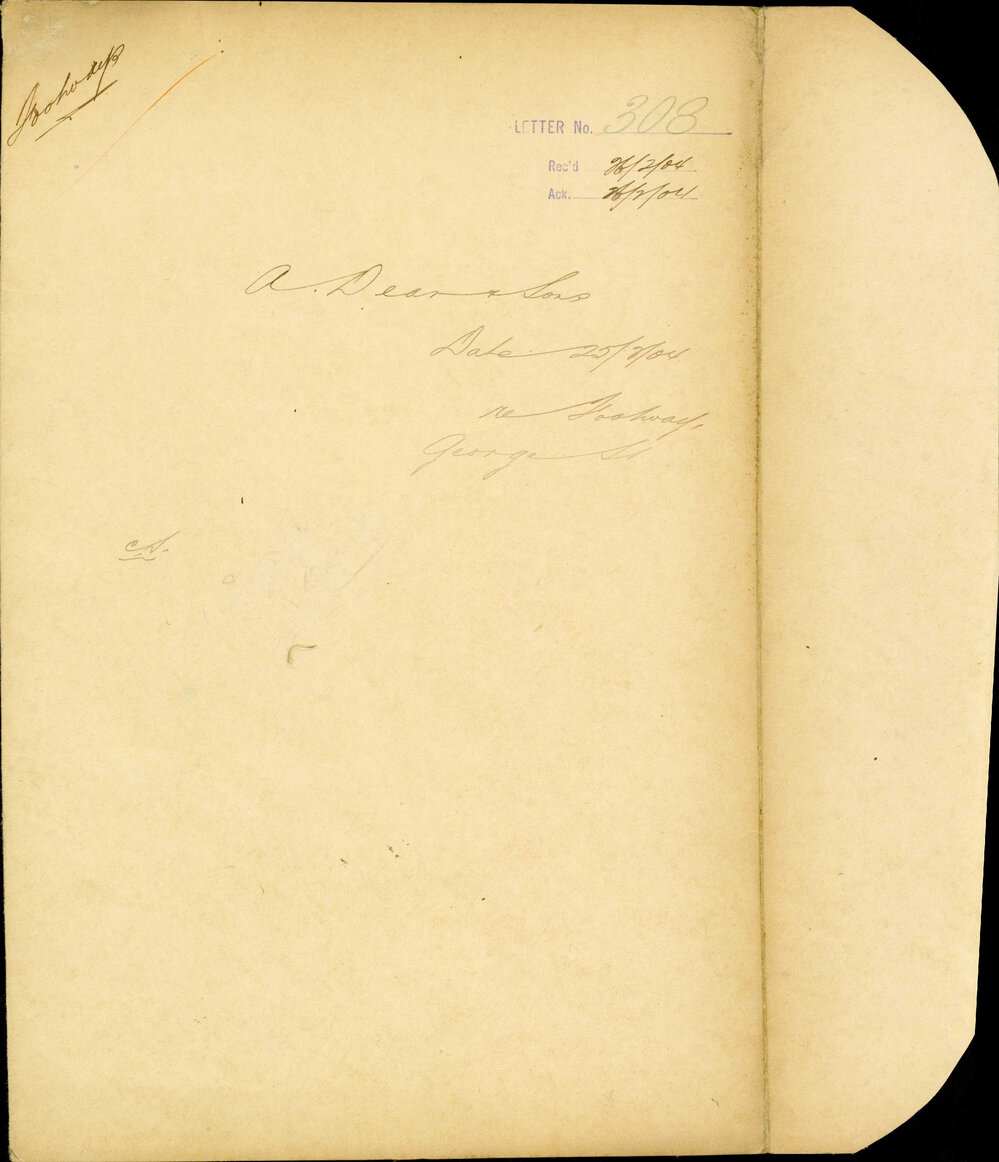 Footways
LETTER No. 308
Rec'd 26/2/04
Ack. 26/2/04
A. Dear & Sons
Date 25/2/04
re Footway,
George St